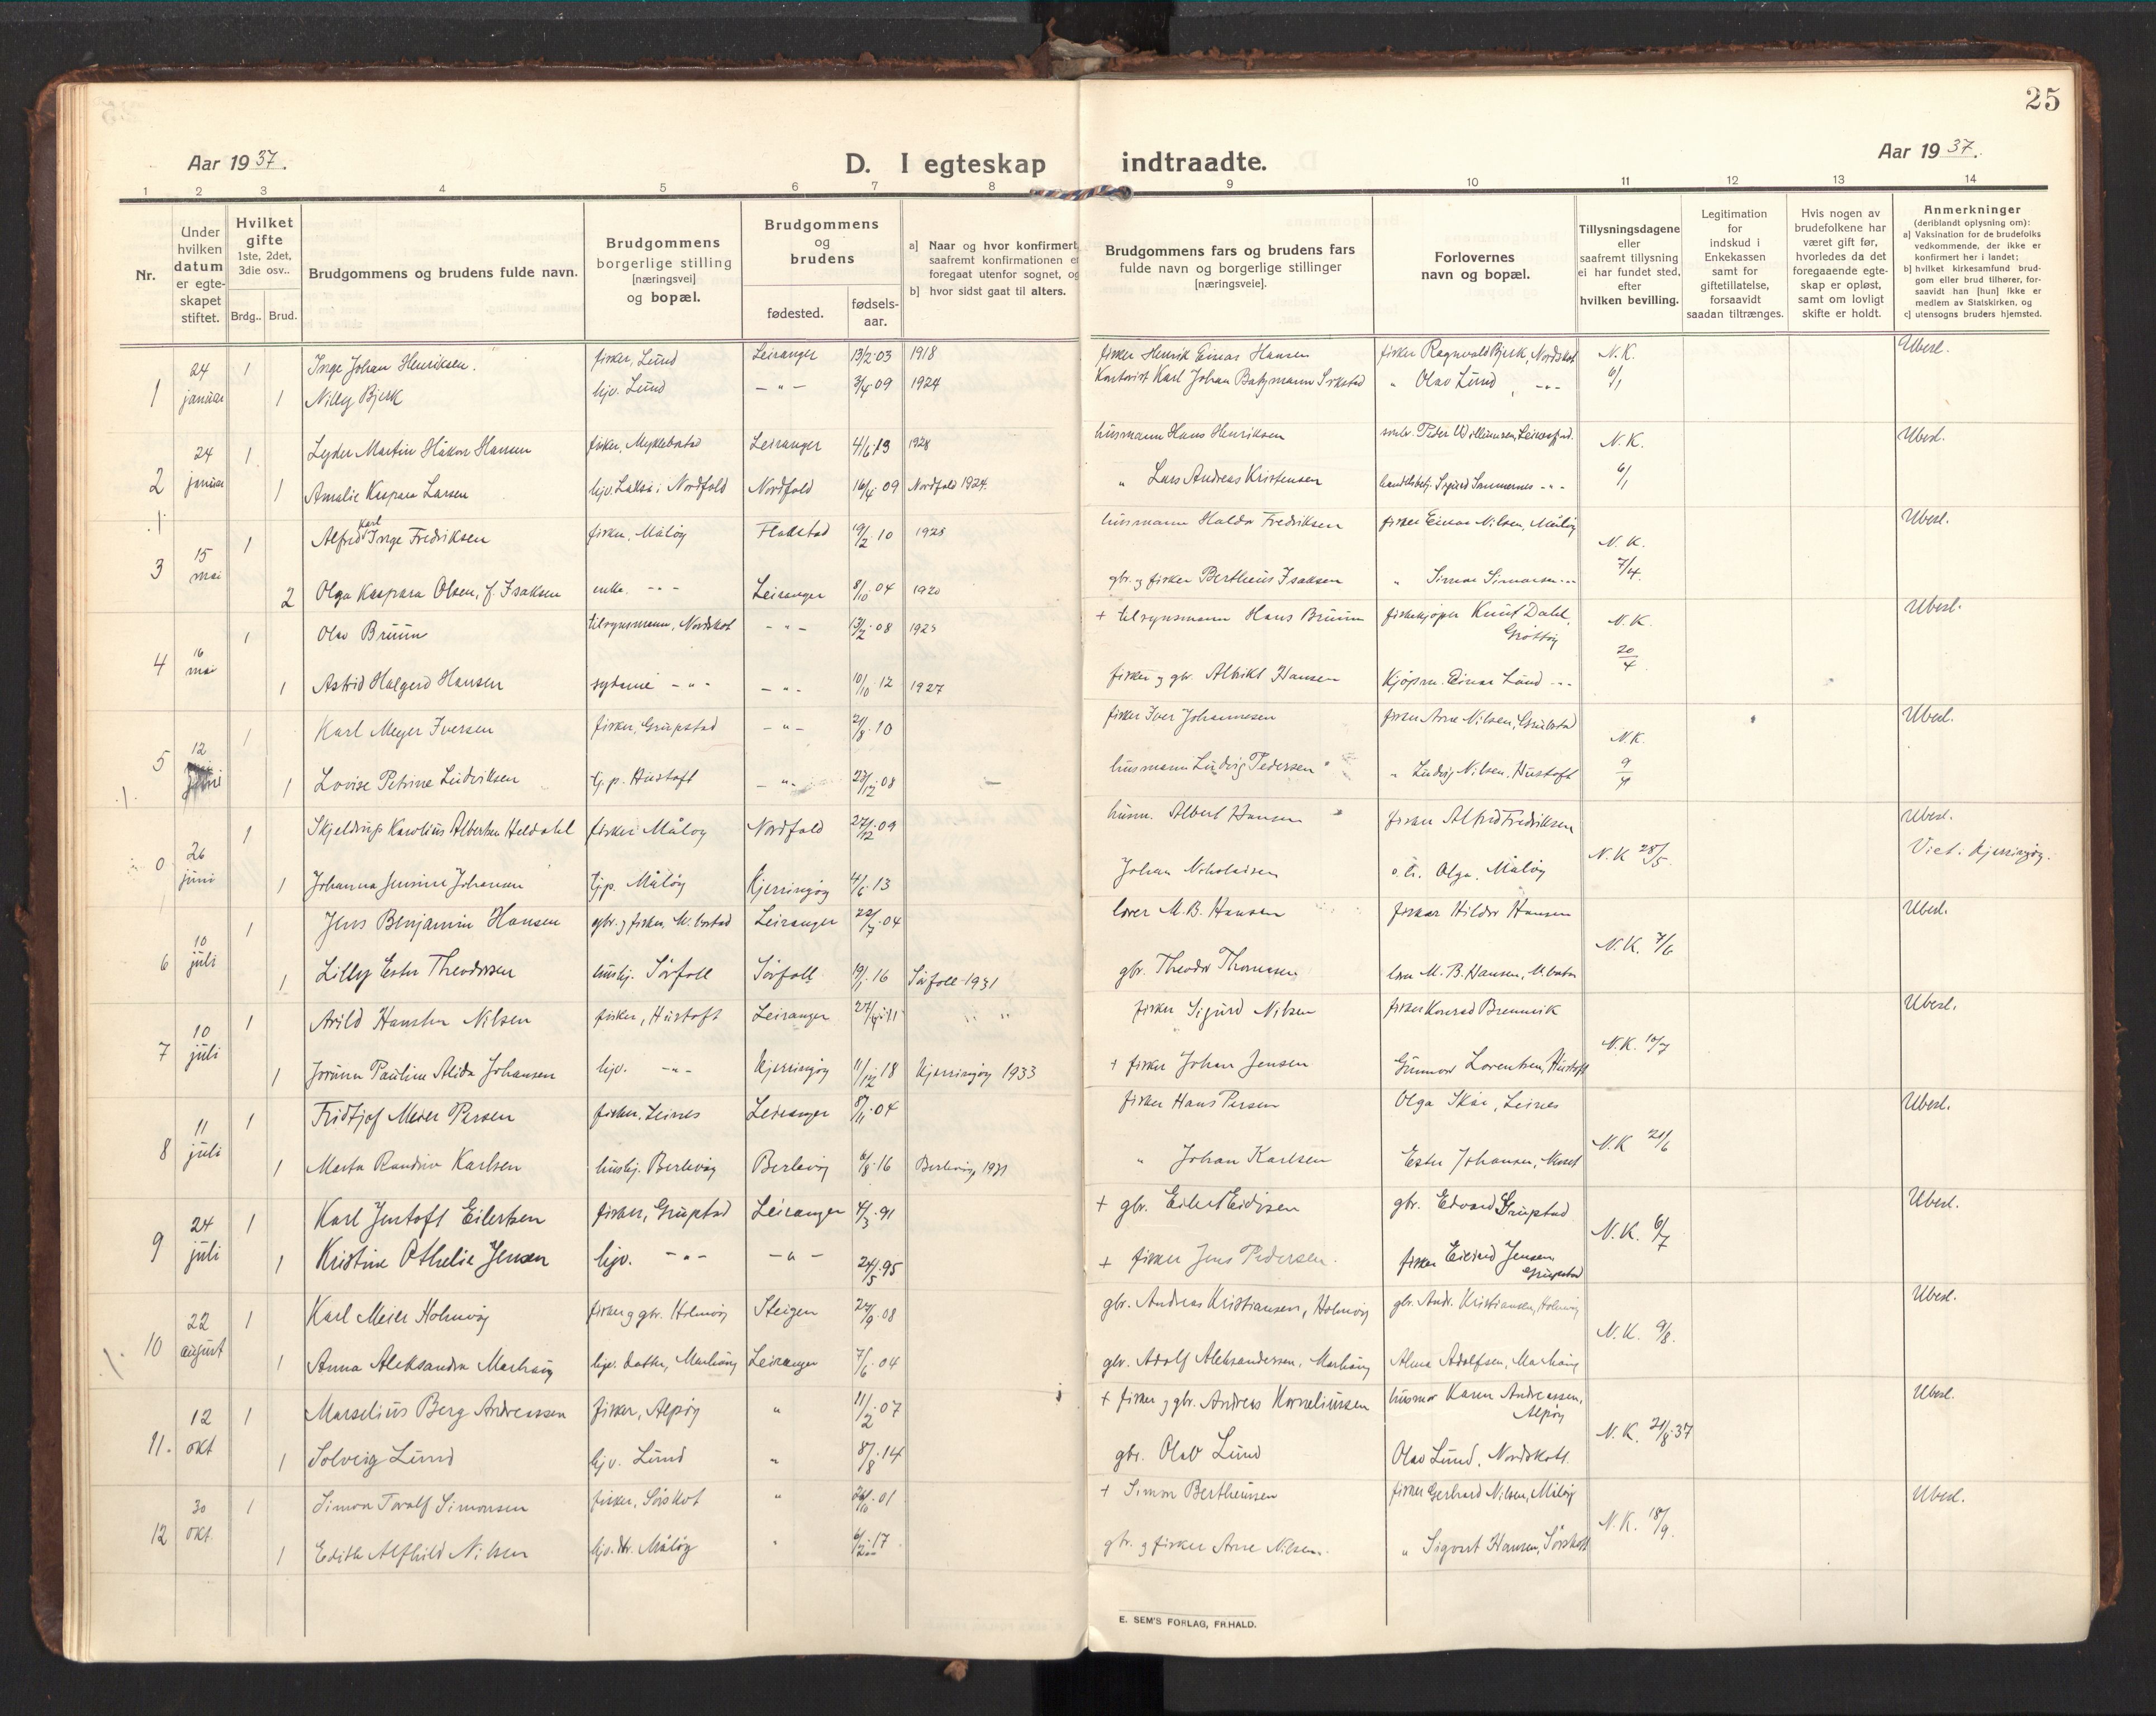 25
Aar 1937.
D. I egteskap indtraadte.
Aar 1937.
1 2 3 4 5 6 7 8 9 10 11 12 13 14
Nr.
Under hvilken datum er egteskapet stiftet.
Hvilket gifte 1ste, 2det, 3die osv..
Brdg.. Brud.
Brudgommens og brudens fulde navn.
Brudgommens borgerlige stilling [næringsvei] og bopæl.
Brudgommens og brudens
fødested.
fødsels-aar.
a] Naar og hvor konfirmert,
saafremt konfirmationen er
foregaat utenfor sognet, og
b] hvor sidst gaat til alters.
Brudgommens fars og brudens fars
fulde navn og borgerlige stillinger
[næringsveie].
Forlovernes
navn og bopæl.
Tillysningsdagene
eller
saafremt tillysning
ei har fundet sted,
efter
hvilken bevilling.
Legitimation
for
indskud i
Enkekassen
samt for
giftetillatelse,
forsaavidt
saadan tiltrænges.
Hvis nogen av
brudefolkene har
været gift før,
hvorledes da det
foregaaende egte-
skap er opløst,
samt om lovligt
skifte er holdt.
Anmerkninger
(deriblandt oplysning om):
a] Vaksination for de brudefolks
vedkommende, der ikke er
konfirmert her i landet;
b] hvilket kirkesamfund brud-
gom eller brud tilhører, for-
saavidt han [hun] ikke er
medlem av Statskirken, og
c] utensogns bruders hjemsted.
1 24 januar 1 Inge Johan Henriksen. fisker, Lund Leiranger 13/2 03 1918 fisker Henrik Einar Hansen fisker Ragnvald Bjerk, Nordskot N.K. 6/1 Ubesl.
1 Nilly Bjerk hjv. Lund - " - 3/4 09 1924 Karl Johan " Olav Lund, - " -
2 24 januar 1 Lyder Martin Håkon Hansen fisker, Myklebostad Leiranger 4/6 13 1928 husmann Hans Henriksen N.K. 6/1 Ubesl.
1 Amalie Kaspara Larsen hjv. Nordfold Nordfold 16/4 09 Nordfold 1924. " Lars Andreas Kristensen
3 15 mai 1 Alfred Karl Inge Fredriksen fisker, Måløy Flakstad 19/2 10 1925 husmann Haldor Fredriksen fisker Einar Nilsen, Måløy N.K. 7/4. Ubesl.
2 Olga Kaspara Olsen, f. Isaksen enke. - " - Leiranger 8/10 04 1920 gbr. og fisker Bertheus Isaksen " Simon Simonsen - " -
4 16 mai 1 Olav Bruun tilsynsmann, Nordskot - " - 13/2 08 1923 + tilsynsmann Hans Bruun fiskekjøper Knut Dahl, Grøtøy N.K. 20/4 Ubesl.
1 Astrid Halgerd Hansen sydame - " - - " - 10/10 12 1927 fisker og gbr. Albrikt Hansen Kjøpm. Einar Lund - " -
5 12 juni 1 Karl Meyer Iversen fisker, Grupstad - " - 10 fisker Iver Johannesen fisker Arne Nilsen, Grubstad N.K. Ubesl.
1 Lovise Petrine Ludviksen tj.p. Hustoft - " - 23/12 08 - husmann Ludvig Pedersen " Ludvig Nilsen, Hustoft
0 26 juni 1 Skjeldrup Karolius Albertsen Heldahl fisker Måloy Nordfold 27/12 09 husm. Albert Hansen fisker Alfred Fredriksen N.K 28/5. Ubesl.
1 Johanna Jensine Johansen tjp. Måløy Kjerringøy 4/6 13 Johan Nikolaisen o. h. Olga, Måløy Viet i Kjerringøy.
6 10 juli 1 Jens Benjamin Hansen gbr. og fisker, M. bostad Leiranger 22/7 04 lærer M.B. Hansen fisker Hildor Hansen N.K. 7/6 Ubesl.
1 Lilly Ester Theodorsen hushj. Sørfold Sørfold 19/1 16 Sørfold 1931 gbr. Theodor Thomassen lærer M.B. Hansen,
7 10 juli 1 Arild Hansten Nilsen fisker, Hustoft Leiranger 27/4 11 " " fisker Sigurd Nilsen fisker Konrad Brennvik N.K. 10/7 Ubesl.
1 Jorunn Pauline Alida Johansen hjv. - " - Kjerringøy 11/12 18 Kjerringøy 1933 + fisker Johan Jensen Gunnar Lorentsen, Hustoft
8 11 juli 1 Fridtjof Meier Persen fisker, Leines Leiranger 8/11 04 fisker Hans Persen Olga Skår, Leines N.K 21/6 Ubesl.
1 Marta Randine Karlsen hushj. Berlevåg Berlevåg 6/8 16 Berlevåg 1931 " Johan Karlsen Ester Johansen,
9 24 juli 1 Karl Justoft Eilertsen fisker, Grupstad Leiranger 4/3 91 + gbr. Eilert Eidisen gbr. Edvard Grupstad N.K. 6/7 Ubesl.
1 Kristine Othelie Jensen hjv. - " - - " - 24/5 95 + fisker Jens Pedersen. fisker Eilivd Jensen Grupstad
10 22 august 1 Karl Meier Holmøy fisker og gbr. Holmøy Steigen 24/9 08 gbr. Andreas Kristiansen, Holmøy gbr. Andr. Kristiansen, Holmøy N.K. 9/8. Ubesl.
1 Anna Aleksandra Marhaug hjv. datter, Marhaug Leiranger 7/6 04 gbr. Adolf Aleksandersen, Marhaug Alma Adolfsen, Marhaug
11. 12 okt 1 Marselius Berg Andreassen fisker, Alpøy " 11/2 07 + fisker og gbr. Andreas Korneliussen husmor Karen Andreassen, Alpøy N.K. 21/8 37 Ubesl.
1 Solveig Lund hjv. Lund " 8/8 14 gbr. Olav Lund Olav Lund, Nordskott.
12 30 okt. 1 Simon Torolf Simonsen fisker, Sørskot " 26/10 01 + Simon Bertheussen fisker Gerhard Nilsen, Måløy N.K. 18/9. Ubesl.
1 Edith Alfhild Nilsen hjv. dtr. Måløy " 17 gbr. og fisker Arne Nilsen. " Sigvart Hansen, Sørskott
E. SEM'S FORLAG, FR.HALD.